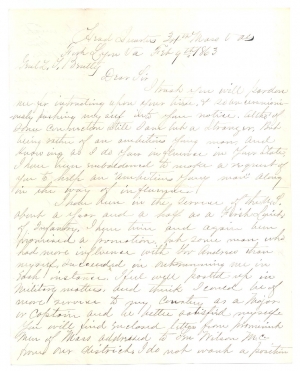 Head Quarters 34th Mass 6 ad
Fort Lyon Va Feb 9th 1863
Genl
Dear Sir
I trust you will pardon
me for intruding upon your time, & so
pushing my self into your notice, altho I
am but a stranger, but
being rather of an ambitious young man, and
knowing as I do your influence in your state,
I have been emboldened to make a request of
you to help an ambitious young man along
in the way of influence.
I have been in the service of the U.S.
about a year and a half as a First Lieut
of Infantry, I have time and again been
promised a promotion, but some man who
had more influence with Gov Andrew than
myself, succeeded in
each instance. I feel well posted up in
military matters, and think I could be of
more service to my Country as a Major
or Captain and be better satisfied myself.
You will find Enclosed letters from prominent
men of Mass addressed to Hon Wilson M.C.
from our district. I do not want a position